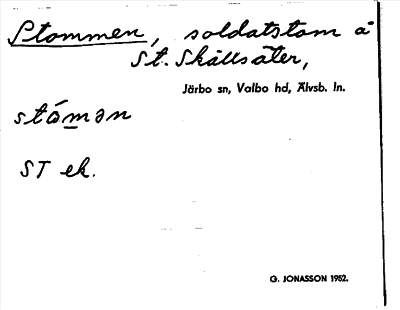 Stommen, soldatstom å
St. Skällsäter,
Järbo sn, Valbo hd, Älvsb. ln.
stómən
ST ek.
G. JONASSON 1952.